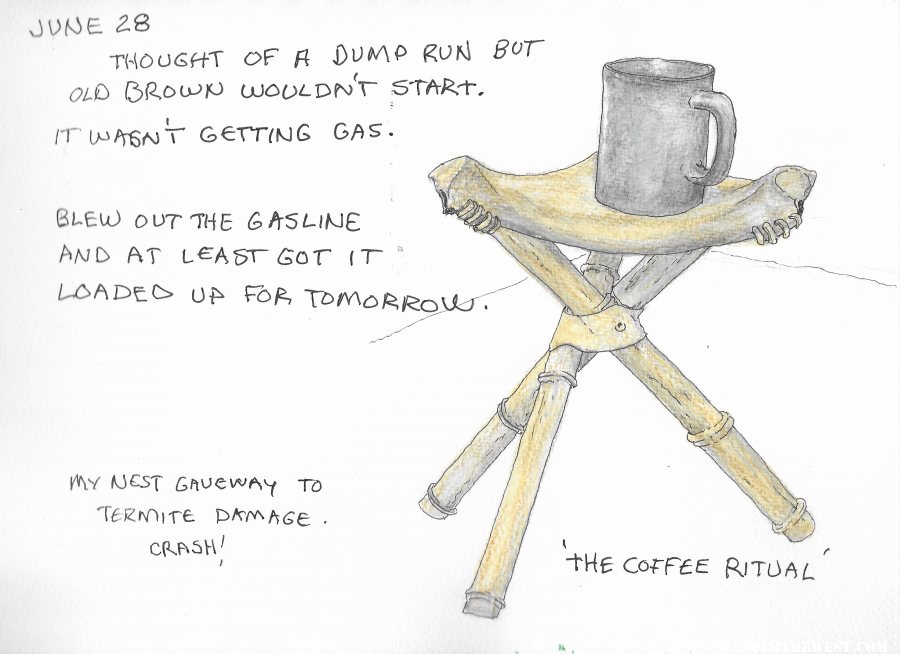 JUNE 28
THOUGHT OF A DUMP RUN BUT
OLD BROWN WOULDN'T START.
IT WASN'T GETTING GAS.
BLEW OUT THE GASLINE
AND AT LEAST GOT IT
LOADED UP FOR TOMORROW.
MY NEST GAVEWAY TO
TERMITE DAMAGE.
CRASH!
'THE COFFEE RITUAL'
WANDERTHEWEST.COM